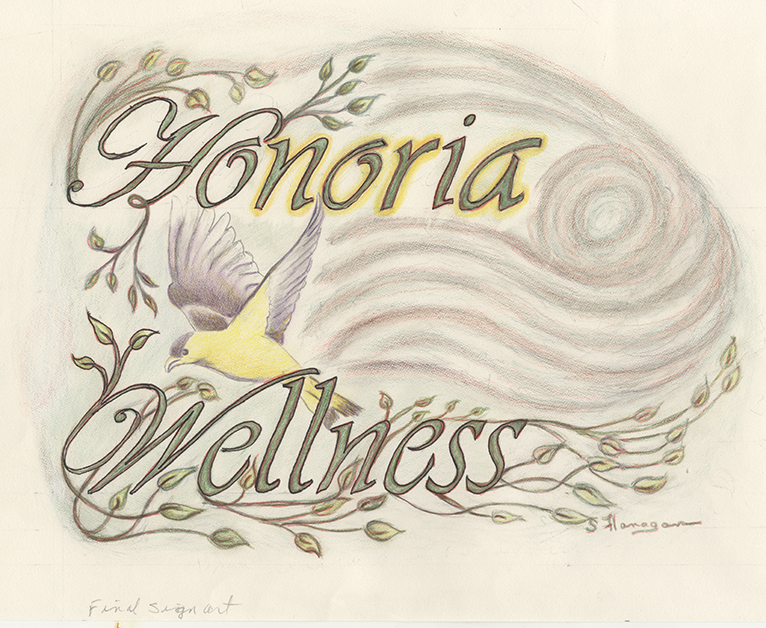 Honoria
Wellness
S Flanagan
Final sign art